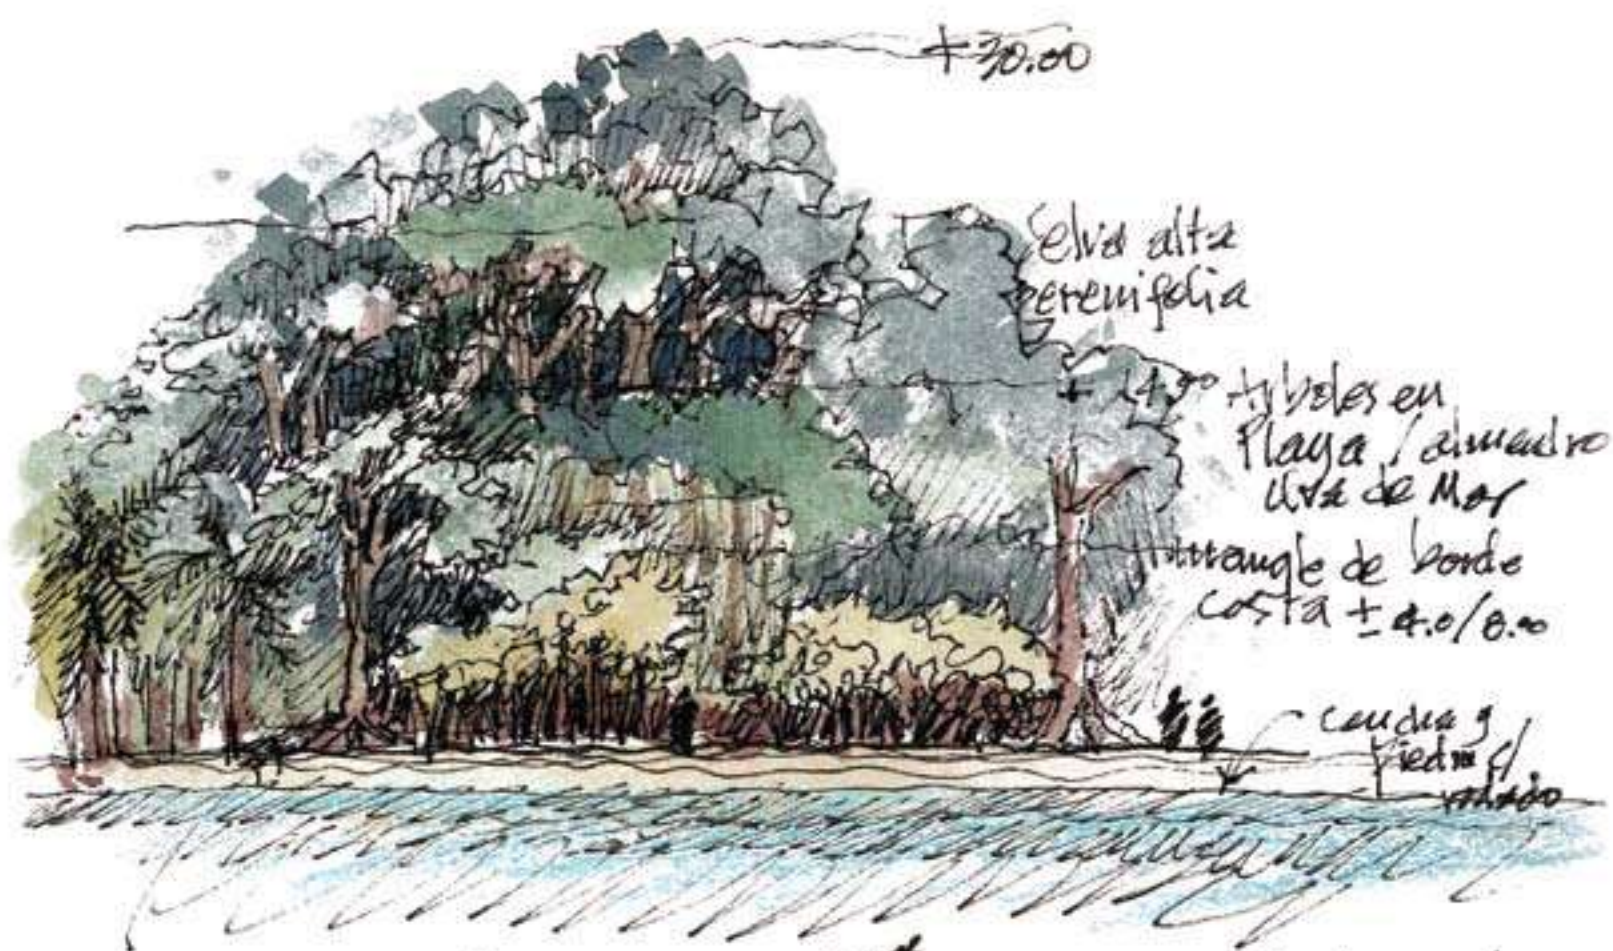 +30.00
Selva alta
perenifolia
+ 14.00 Arboles en
Playa / almendro
Uva de Mar
mangle de borde
costa ± 4.0/8.00
piedra c/